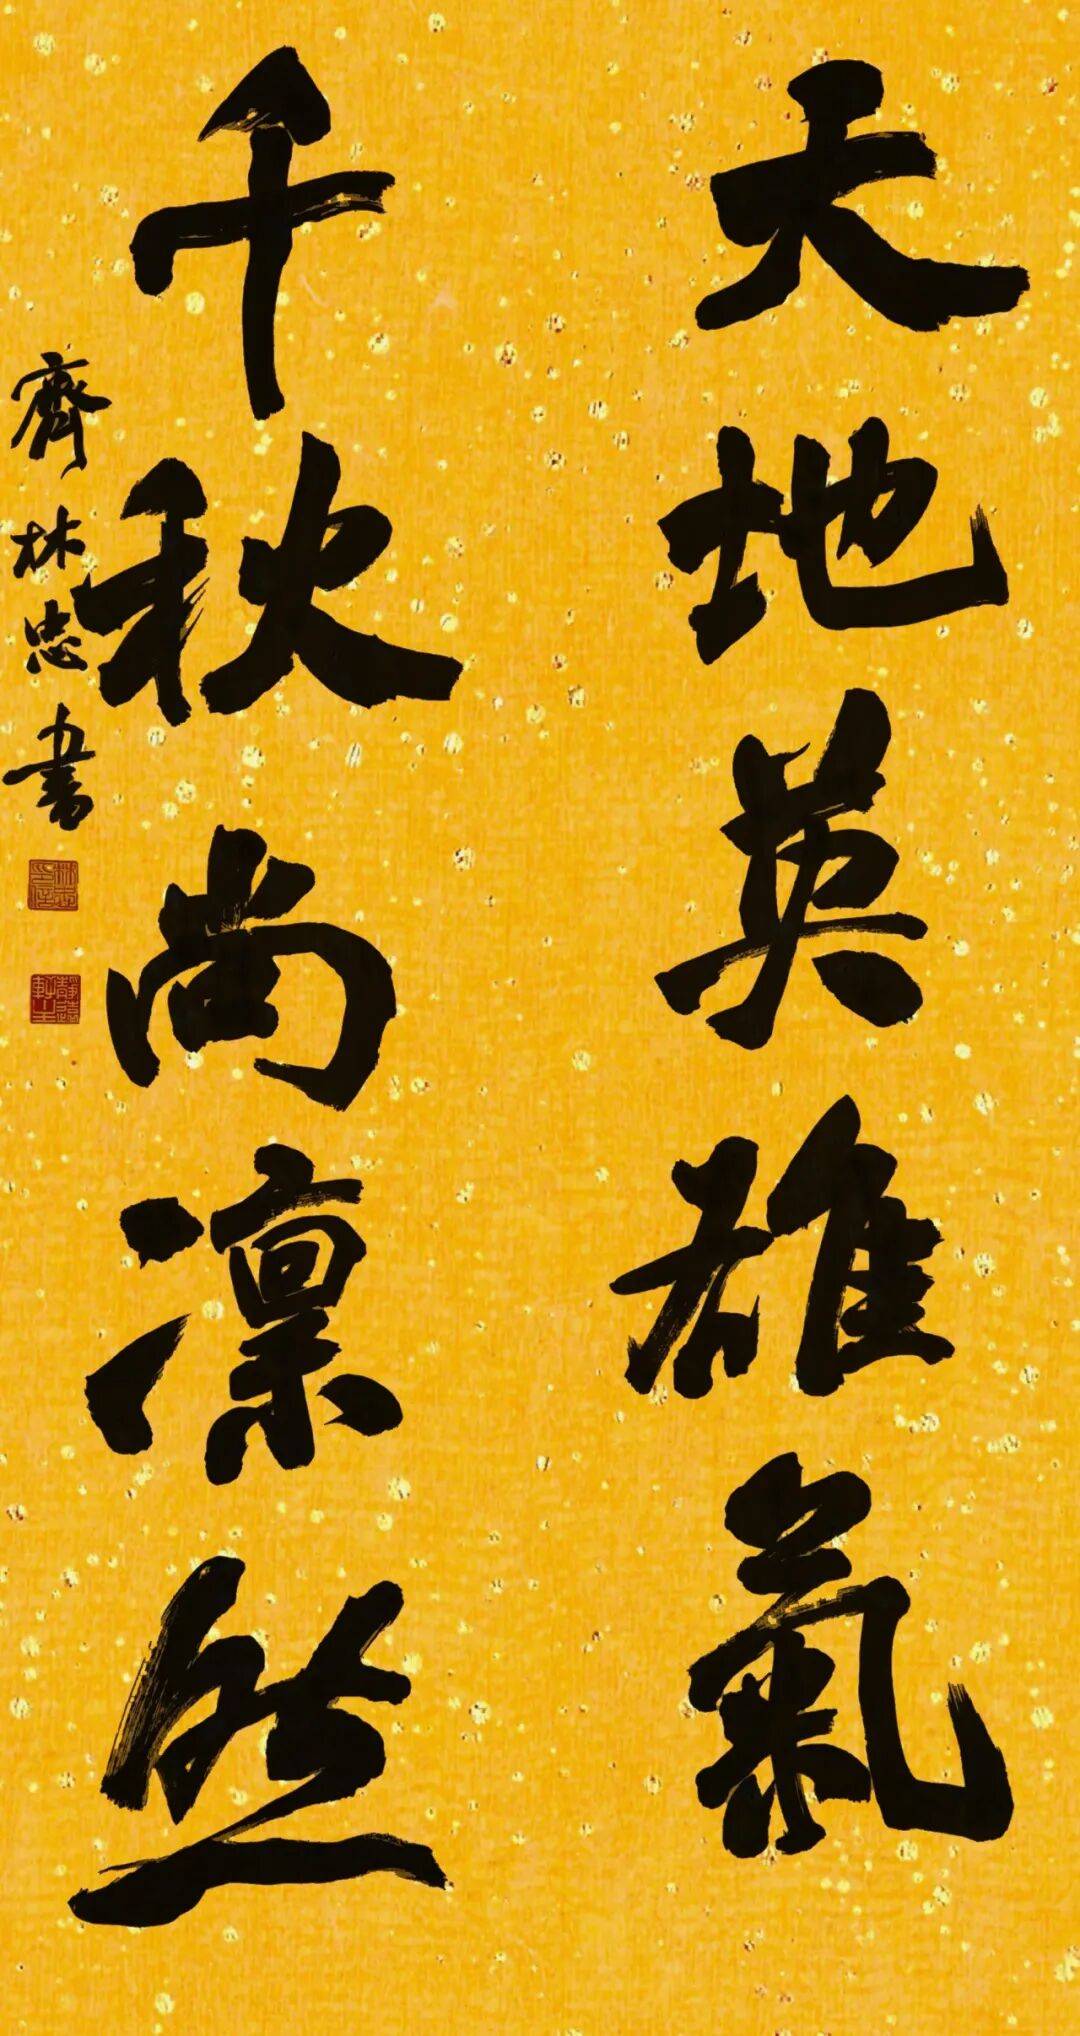 天地英雄氣
千秋尚凛然
齊林忠書